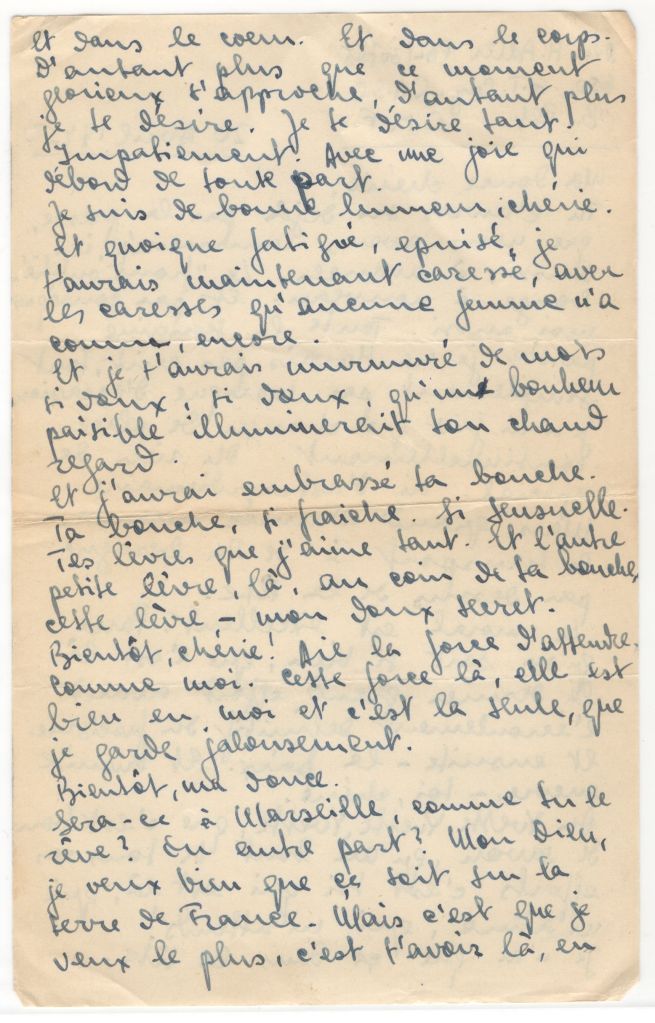 Et dans le coeur. Et dans le corps.
D'autant plus que ce moment
glorieux s'approche, d'autant plus
je te désire. Je te désire tant.
Impatiement. Avec une joie qui
débord de toute part.
Je suis de bonne humeur, chérie.
Et quoique fatigué, epuisé, je
t'aurais maintenant caressé, avec
les caresses qu'aucune femme n'a
connu, encore.
Et je t'aurais murmuré de mots
si doux, si doux, qu'un bonheur
paisible illuminerait ton chaud
regard.
Et j'aurai embrassé ta bouche.
Ta bouche, si fraiche. Si sensuelle.
Tes lèvres que j'aime tant. Et l'autre
petite lèvre, là, au coin de ta bouche,
cette lèvre – mon doux secret.
Bientôt, chérie! Aie la force d'attendre,
comme moi. Cette force là, elle est
bien en moi et c'est la seule, que
je garde jalousement.
Bientôt, ma douce.
Sera-ce à Marseille, comme tu le
rêve? Ou autre part? Mon Dieu,
je veux bien que ce soit sur la
terre de France. Mais c'est que je
veux le plus, c'est t'avoir là, en